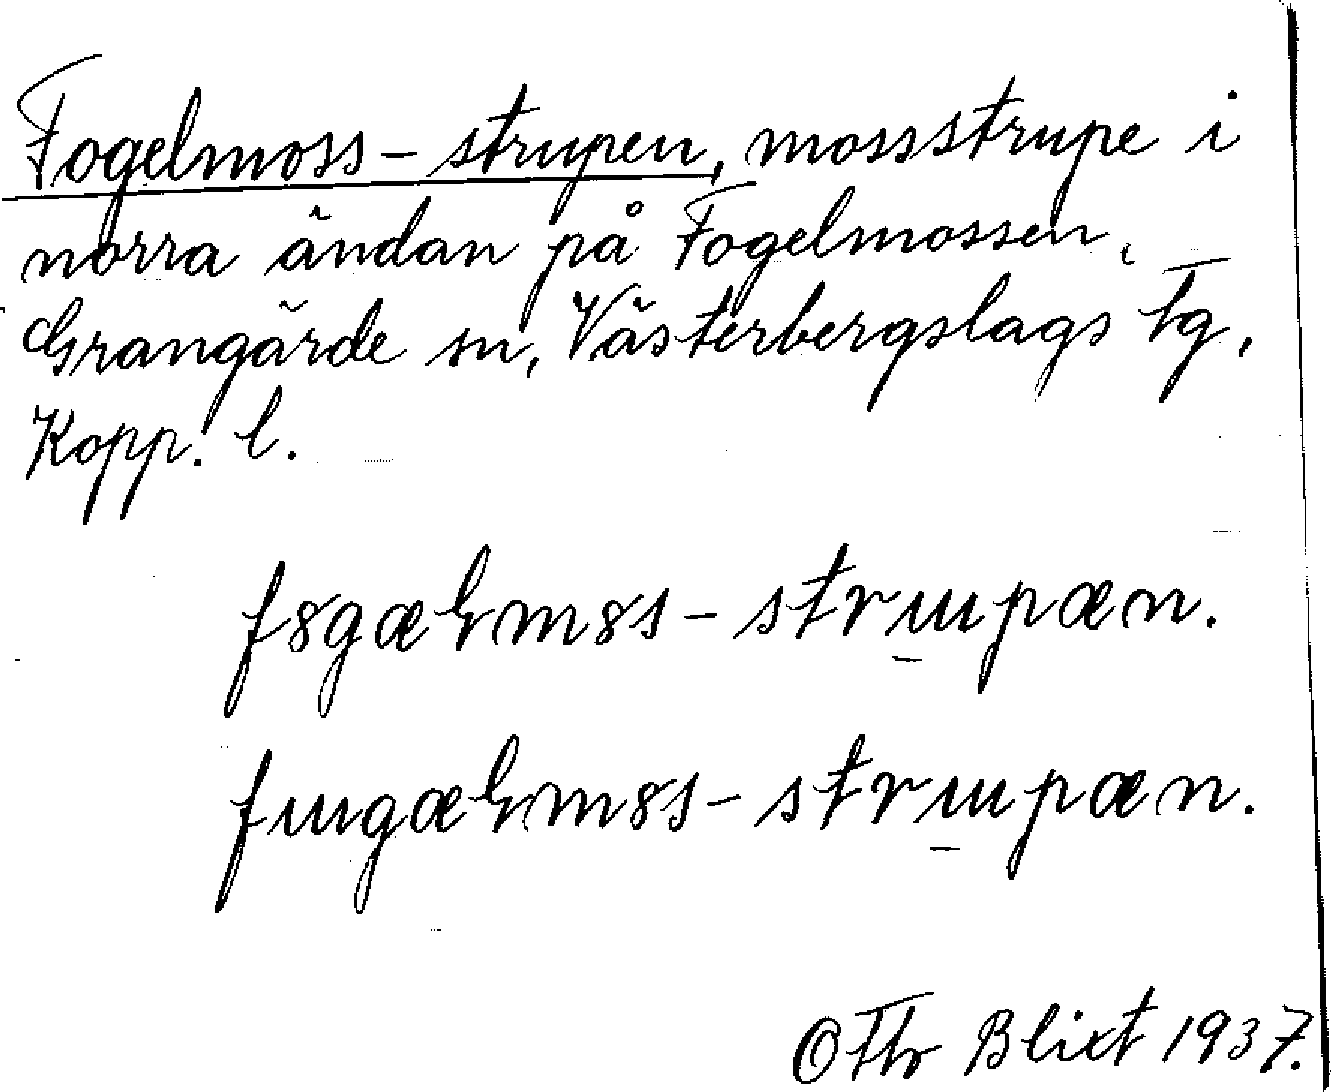 Fogelmoss-strupen, mossstrupe i
norra ändan på Fogelmossen,
Grangärde sn, Västerbergslags tg,
Kopp. l.
f8gæꞎm8s-strɯpæn.
fɯgæꞎm8s-strɯpæn.
OThr Blixt 1937.